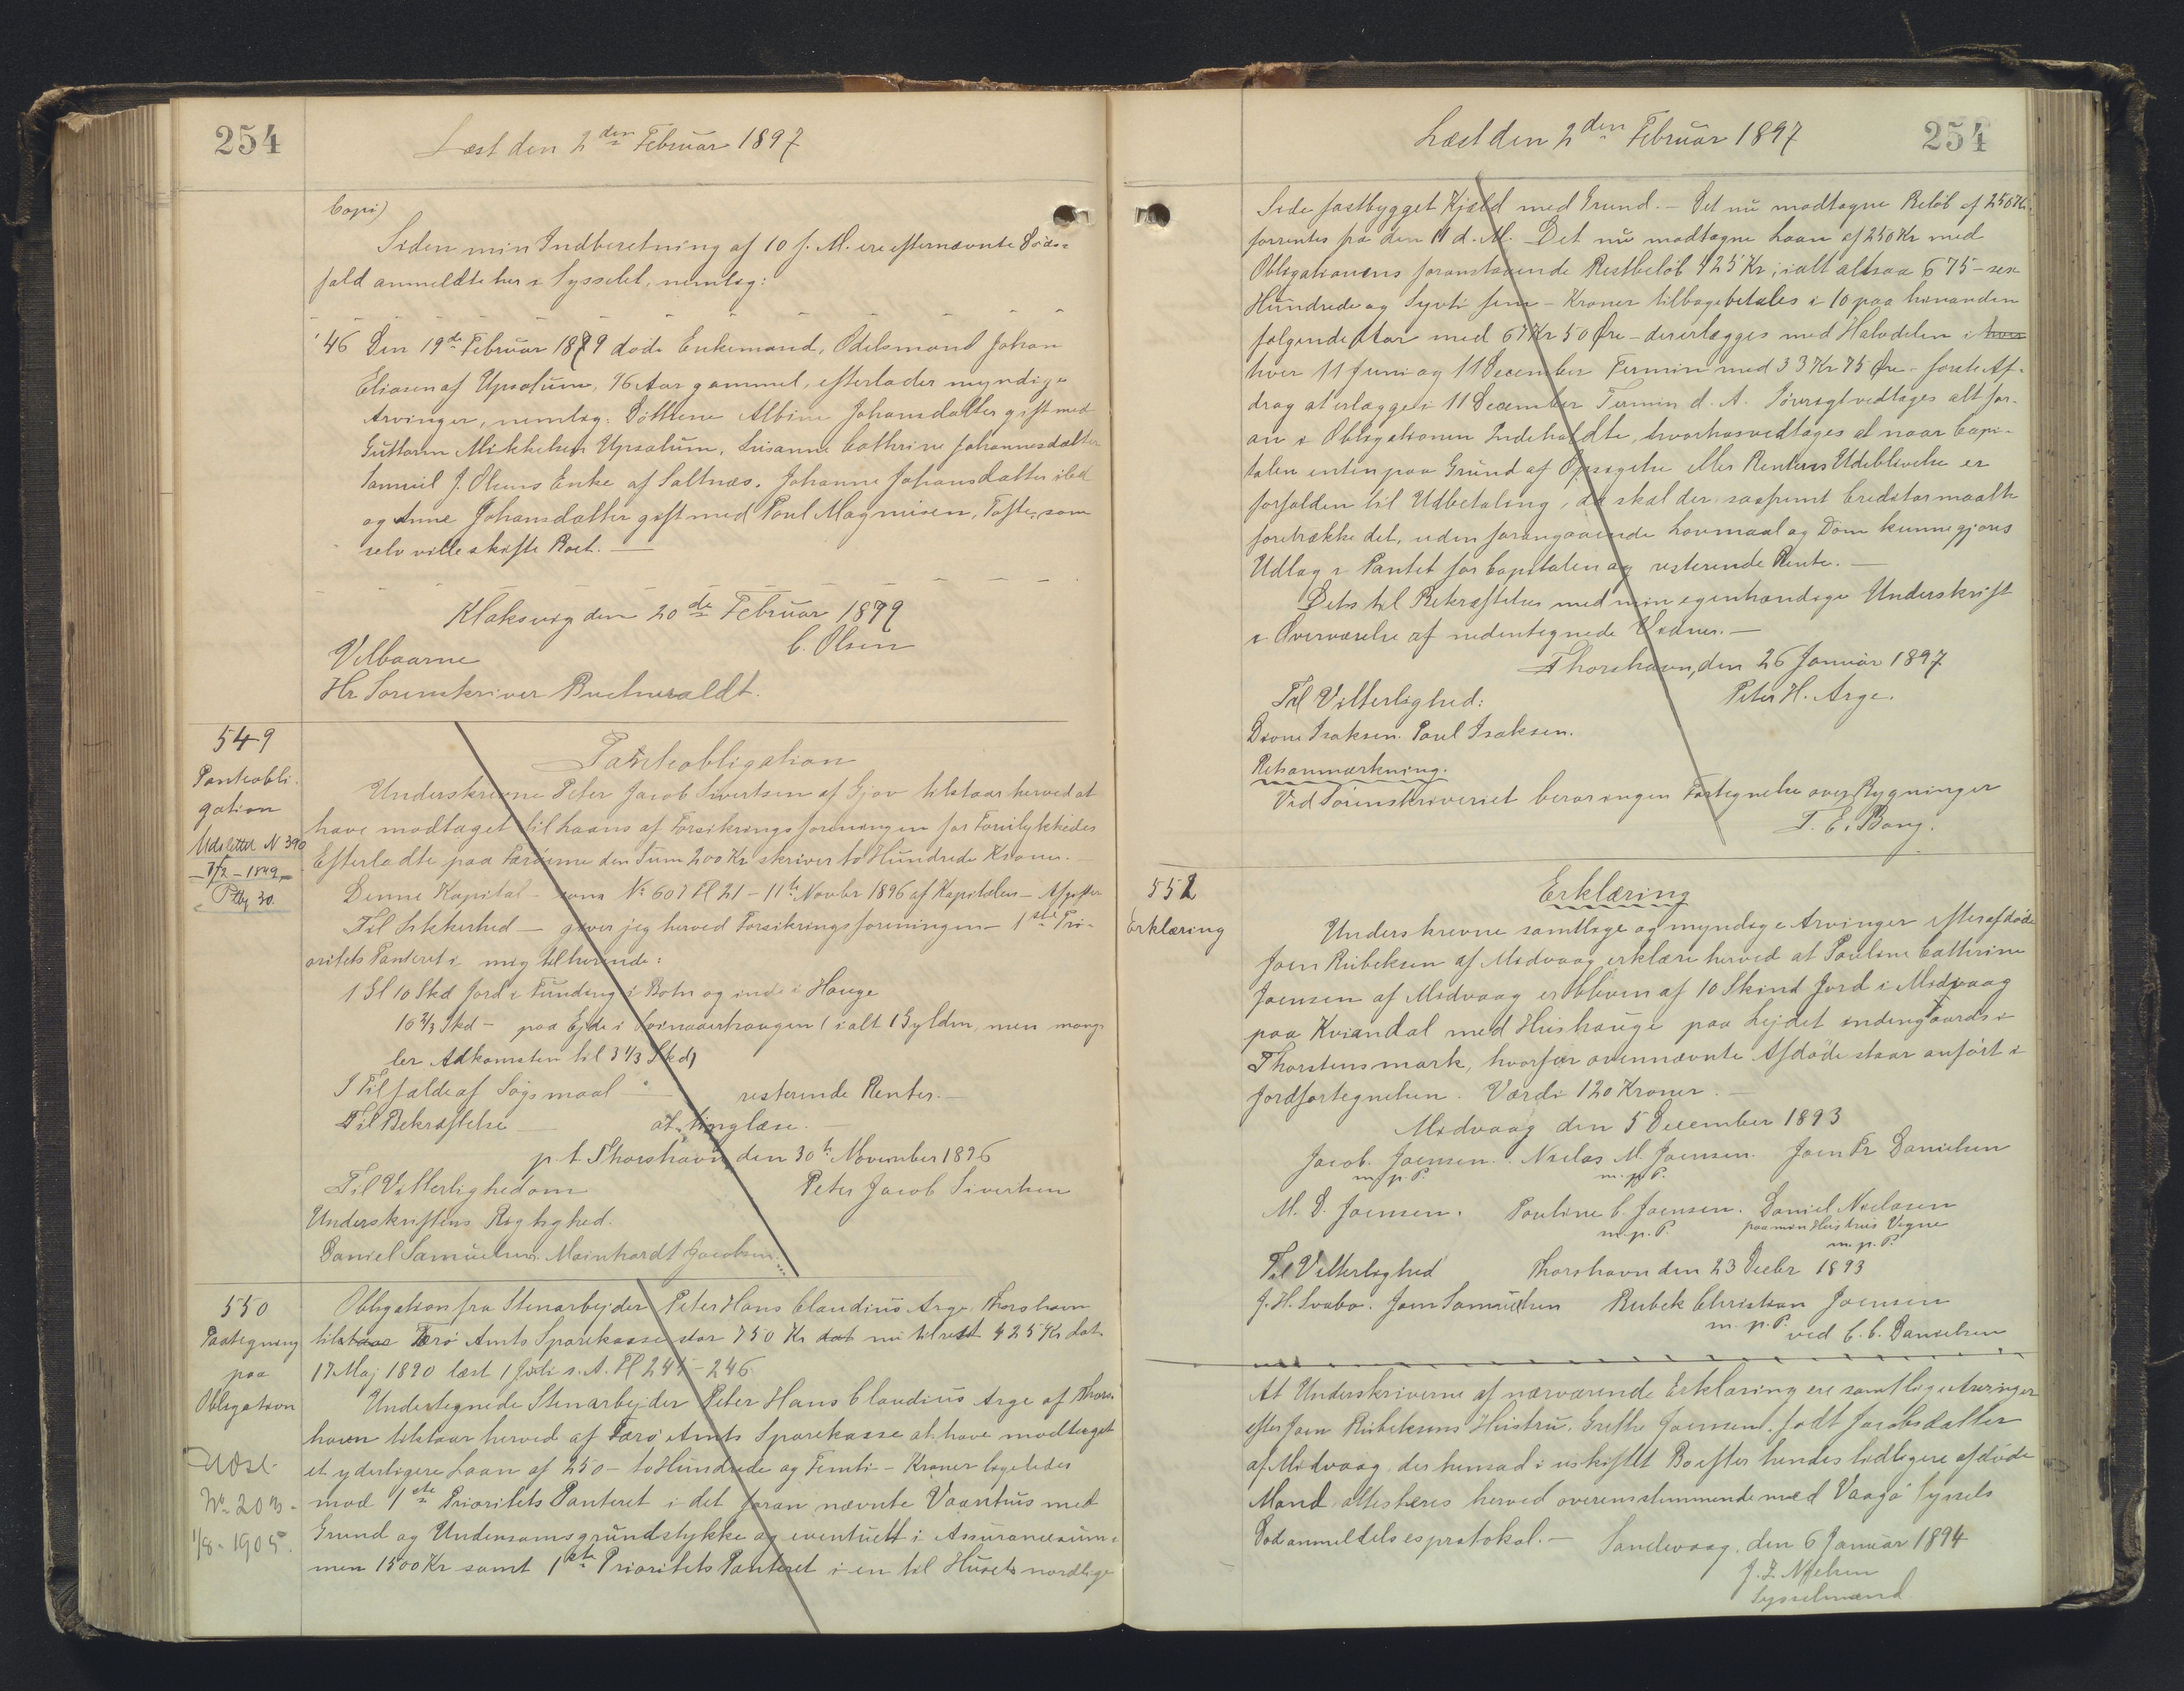 254
Læst den 2den Februar 1897
Copi)
Siden min Indberetning af 10 f. M. ere efternævnte Døds-
fald anmeldte her i Sysselet, nemlig:
46 Den 19de Februar 1879 døde Enkemand, Odelsmand Johan
Eliasen af Upsalum, 76 Aar gammel, efterlader myndige
Arvinger, nemlig: Döttrene Albine Johansdatter gift med
Guttorm Mikkelsen Upsalum, Susanne Cathrine Johannesdatter
Samuel J. Olsens Enke af Saltnæs, Johanne Johansdatter ibd
og Anne Johansdatter gift med Poul Magnusen, Tofte, som
selv ville skifte Boet. —
Klaksvig den 20de Februar 1879
C. Olsen
Velbaarne
Hr. Sorenskriver Buchwaldt.
549
Panteobli-
gation
Udslettet N 390
Pantobligation
Underskrevne Peter Jacob Sivertsen af Gjov tilstaar herved at
have modtaget tillaans af Forsikringsforeningen for Forulykkedes
Efterladte paa Færøerne den Sum 200 Kr skriver to Hundrede Kroner.
Denne Kapital — som No 607 Fl 21 – 11te Novbr 1896 af Kapitalen — Afgifter
Til Sikkerhed — giver jeg herved Forsikringsforeningen — 1ste Pri-
oritets Panteret i mig tilhørende:
1 Gl 10 Skd Jord i Funding i Botn og inde i Hauge
10 2/3 Skd — paa Ejde i Svinaaerhaugen (ialt 1 Gylden, men mang-
ler Adkomsten til 3 1/3 Skd)
I Tilfælde af Søgsmaal — resterende Renter. —
Til Bekræftelse — at tinglæse. —
p. t. Thorshavn den 30te November 1896
Til Vitterlighed om
Peter Jacob Sivertsen
Underskriftens Rigtighed.
Daniel Samuelsen. Mainhardt Jacobsen
550
Paategning
paa
Obligation
Udsl.
No 203
1/8 - 1905.
Obligation fra Stenarbejder Peter Hans Claudius Arge, Thorshavn
til Færø Amts Sparekasse stor 750 Kr dat nu tilrest 425 Kr dat.
17 Maj 1890 læst 1 Juli s. A. Fl 245 – 246.
Undertegnede Stenarbejder Peter Hans Claudius Arge af Thors-
havn tilstaar herved af Færø Amts Sparekasse at have modtaget
et yderligere Laan af 250 – to Hundrede og Femti – Kroner ligeledes
mod 1ste Prioritets Panteret i det foran nævnte Vaanhus med
Grund og Undensomsgrundstykke og eventuelt i Assurancesum-
men 1500 Kr samt 1ste Prioritets Panteret i en til Husets nordlige
Læst den 2den Februar 1897
254
Side fastbygget Kjæld med Grund. — Det nu modtagne Beløb af 250 Kr.
forrentes fra den 11 d. M. Det nu modtagne Laan af 250 Kr med
Obligationens foranstaaende Restbeløb 425 Kr; ialt altsaa 675 – sex
Hundrede og Syvti fem – Kroner tilbagebetales i 10 paa hinanden
følgende Aar med 67 Kr 50 Øre – der erlægges med Halvdelen i hver
hver 11 Juni og 11 December Termin med 33 Kr 75 Øre – første Af-
drag at erlægge i 11 December Termin d. A. Iøvrigt vedtages alt for-
an i Obligationen Indeholdte, hvorhos vedtages at naar Capi-
talen enten paa Grund af Opsigelse eller Rentens Udeblivelse er
forfalden til Udbetaling, da skal der, saafremt Creditor maatte
foretrække det, uden forangaaende Lovmaal og Dom kunne gjøres
Udlæg i Pantet for Capitalen og resterende Rente. —
Dets til Bekræftelse med min egenhændige Underskrift
i Overværelse af nedentegnede Vidner. —
Thorshavn, den 26 Januar 1897
Til Vitterlighed:
Peter H. Arge.
Isaksen. Poul Isaksen.
Retsanmærkning.
Ved Sorenskriveriet beror ingen Fortegnelse over Bygninger
T. E. Bang.
552
Erklæring
Erklæring
Underskrevne samtlige og myndige Arvinger efter afdøde
Joen Rubeksen af Midvaag erklære herved at Pauline Cathrine
Joensen af Midvaag er bleven af 10 Skind Jord i Midvaag
paa Kviandal med Hushauge paa Lejdet indengaards i
Thorsteinsmark, hvorfor ovennævnte Afdøde staar anført i
Jordfortegnelsen. Værdi 120 Kroner. —
Midvaag den 5 December 1893
Jacob Joensen. Nielas M. Joensen. Joen Fr Danielsen
m. p. P. m. p. P.
M. D. Joensen. Pauline C. Joensen. Daniel Nielasen
m. p. P. paa min Hustrus Vegne
m. p. P.
Til Vitterlighed Thorshavn den 23 Decbr 1893
J. H. Svabo. Joen Samuelsen Rubek Christian Joensen
m. p. P. ved C. C. Danielsen
At Underskriverne af nærværende Erklæring ere samtlige Arvinger
efter Joen Rubeksens Hustru, Grethe Joensen, født Jacobsdatter
af Midvaag, der hensad i uskiftet Bo efter hendes tidligere afdøde
Mand attesteres herved overensstemmende med Vaagø Syssels
Dødanmeldelsesprotokol. — Sandevaag, den 6 Januar 1894
J. F. Nielsen
Sysselmand